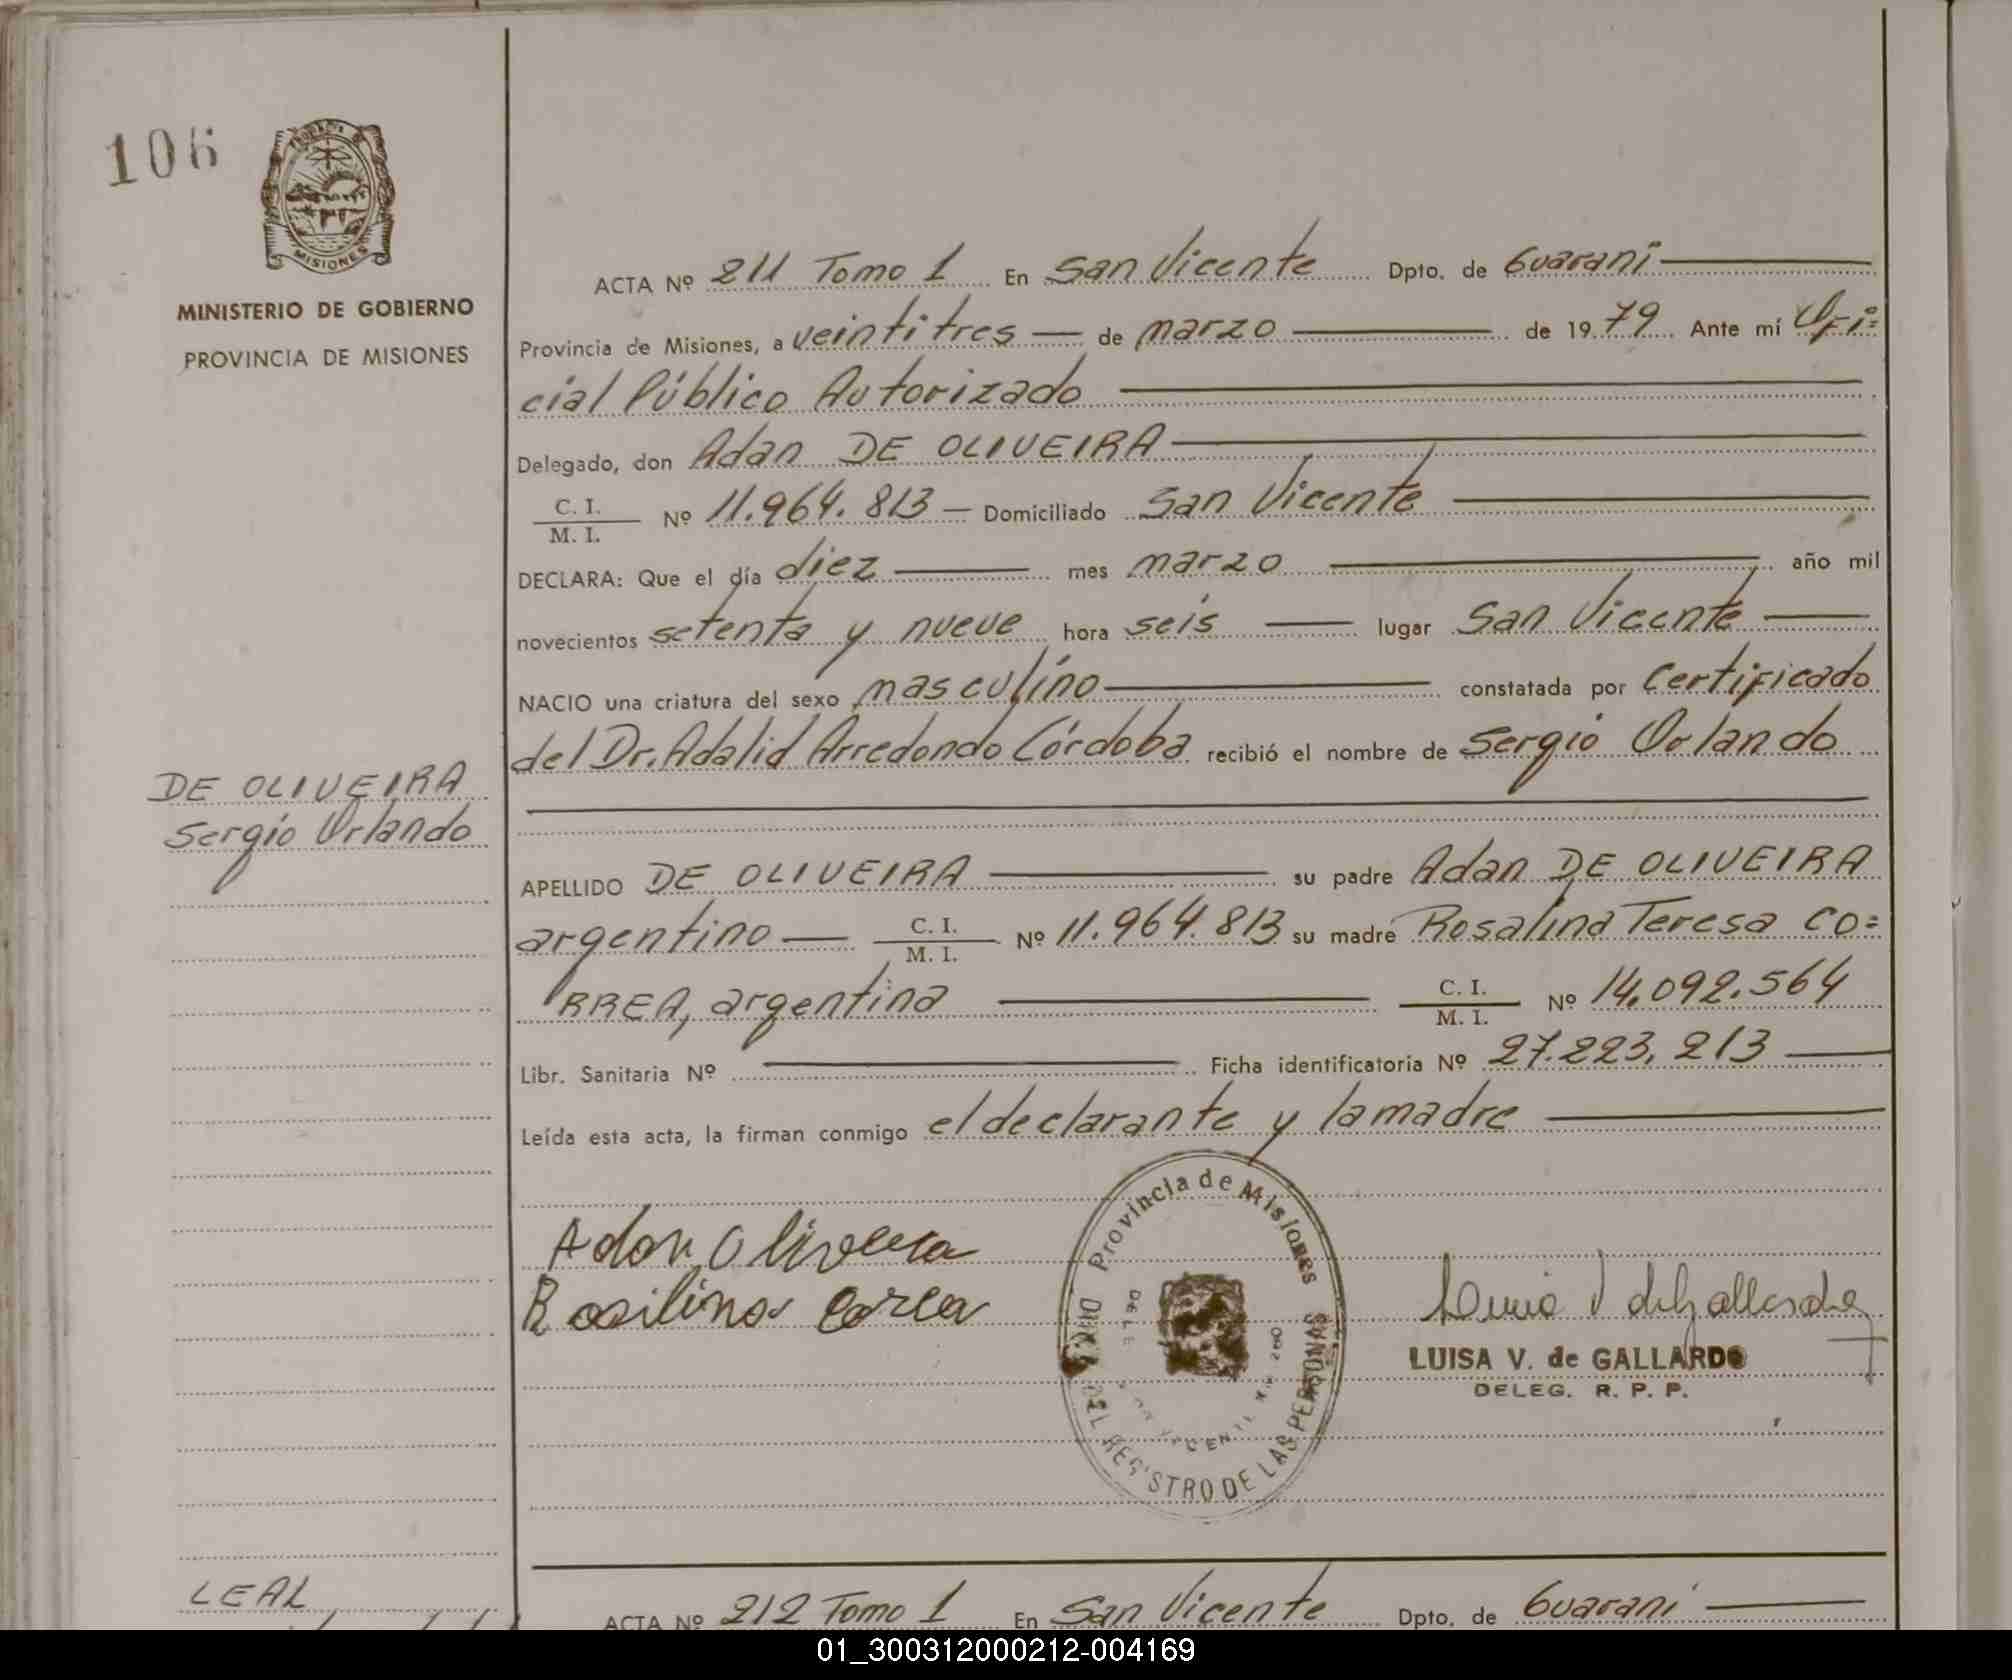 106
MISIONES
MINISTERIO DE GOBIERNO
PROVINCIA DE MISIONES
DE OLIVEIRA
Sergio Orlando
ACTA Nº 211 Tomo 1 En San Vicente Dpto. de Guaraní
Provincia de Misiones, a veintitres de marzo de 1979 Ante mí Ofi=
cial Público Autorizado
Delegado, don Adan DE OLIVEIRA
C. I.
M. I. Nº 11.964.813 Domiciliado San Vicente
DECLARA: Que el día diez mes marzo año mil
novecientos setenta y nueve hora seis lugar San Vicente
NACIO una criatura del sexo masculino constatada por Certificado
del Dr. Adalid Arredondo Córdoba recibió el nombre de Sergio Orlando
APELLIDO DE OLIVEIRA su padre Adan DE OLIVEIRA
argentino C. I.
M. I. Nº 11.964.813 su madre Rosalina Teresa CO=
RREA, argentina C. I.
M. I. Nº 14.092.564
Libr. Sanitaria Nº Ficha identificatoria Nº 27.223.213
Leída esta acta, la firman conmigo el declarante y la madre
Adan Oliveira
Rosilina Correa
Provincia de Misiones
DEL REGISTRO DE LAS PERSONAS
Luisa V de Gallardo
LUISA V. de GALLARDO
DELEG. R. P. P.
LEAL
ACTA Nº 212 Tomo 1 En San Vicente Dpto. de Guaraní
01_300312000212-004169